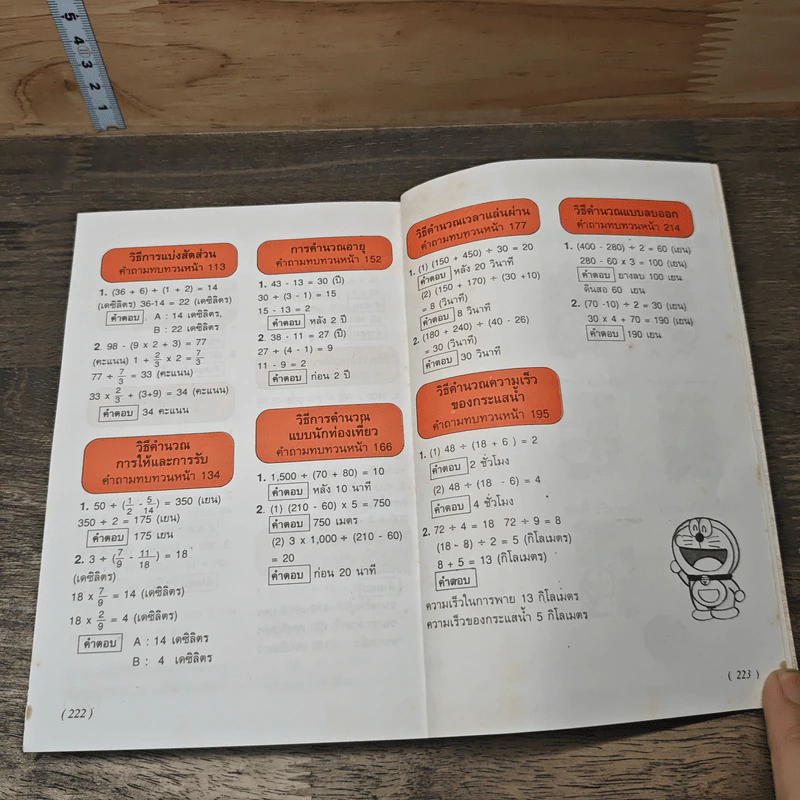 5
4
3
2
1
วิธีการแบ่งสัดส่วน
คำถามทบทวนหน้า 113
1. (36 + 6) ÷ (1 + 2) = 14
(เดซิลิตร) 36-14 = 22 (เดซิลิตร)
คำตอบ A : 14 เดซิลิตร
B : 22 เดซิลิตร
2. 98 - (9 x 2 + 3) = 77
(คะแนน) 1 + 2/3 x 2 = 7/3
77 ÷ 7/3 = 33 (คะแนน)
33 x 2/3 + (3+9) = 34 (คะแนน)
คำตอบ 34 คะแนน
วิธีคำนวณ
การให้และการรับ
คำถามทบทวนหน้า 134
1. 50 ÷ (1/2 - 5/14) = 350 (เยน)
350 ÷ 2 = 175 (เยน)
คำตอบ 175 เยน
2. 3 ÷ (7/9 - 11/18) = 18
(เดซิลิตร)
18 x 7/9 = 14 (เดซิลิตร)
18 x 2/9 = 4 (เดซิลิตร)
คำตอบ A : 14 เดซิลิตร
B : 4 เดซิลิตร
(222)
การคำนวณอายุ
คำถามทบทวนหน้า 152
1. 43 - 13 = 30 (ปี)
30 ÷ (3 - 1) = 15
15 - 13 = 2
คำตอบ หลัง 2 ปี
2. 38 - 11 = 27 (ปี)
27 ÷ (4 - 1) = 9
11 - 9 = 2
คำตอบ ก่อน 2 ปี
วิธีการคำนวณ
แบบนักท่องเที่ยว
คำถามทบทวนหน้า 166
1. 1,500 ÷ (70 + 80) = 10
คำตอบ หลัง 10 นาที
2. (1) (210 - 60) x 5 = 750
คำตอบ 750 เมตร
(2) 3 x 1,000 ÷ (210 - 60)
= 20
คำตอบ ก่อน 20 นาที
วิธีคำนวณเวลาแล่นผ่าน
คำถามทบทวนหน้า 177
1. (1) (150 + 450) ÷ 30 = 20
คำตอบ หลัง 20 วินาที
(2) (150 + 170) ÷ (30 +10)
= 8 (วินาที)
คำตอบ 8 วินาที
2. (180 + 240) ÷ (40 - 26)
= 30 (วินาที)
คำตอบ 30 วินาที
วิธีคำนวณความเร็ว
ของกระแสน้ำ
คำถามทบทวนหน้า 195
1. (1) 48 ÷ (18 + 6 ) = 2
คำตอบ 2 ชั่วโมง
(2) 48 ÷ (18 - 6) = 4
คำตอบ 4 ชั่วโมง
2. 72 ÷ 4 = 18 72 ÷ 9 = 8
(18 - 8) ÷ 2 = 5 (กิโลเมตร)
8 + 5 = 13 (กิโลเมตร)
คำตอบ
ความเร็วในการพาย 13 กิโลเมตร
ความเร็วของกระแสน้ำ 5 กิโลเมตร
วิธีคำนวณแบบลบออก
คำถามทบทวนหน้า 214
1. (400 - 280) ÷ 2 = 60 (เยน)
280 - 60 x 3 = 100 (เยน)
คำตอบ ยางลบ 100 เยน
ดินสอ 60 เยน
2. (70 -10) ÷ 2 = 30 (เยน)
30 x 4 + 70 = 190 (เยน)
คำตอบ 190 เยน
(223)